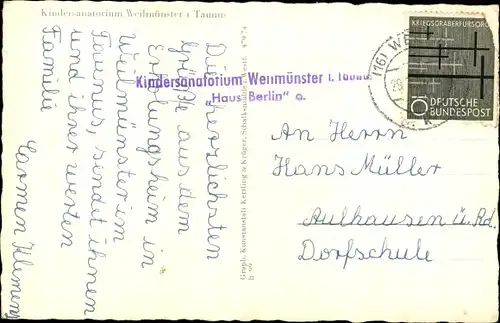 Kindersanatorium Weilmünster i Taunus
Die herzlichsten
Grüße aus dem
Erholungsheim in
Weilmünster im
Taunus, sendet ihnen
und ihrer werten
Familie
Carmen Klemens
Kindersanatorium Weilmünster i. Taunus
„Haus Berlin" a.
Graph. Kunstanstalt Kettling & Krüger, Schalksmühle/Westf. 47874
KRIEGSGRÄBERFÜRSORGE
10
DEUTSCHE
BUNDESPOST
(16) W
An Herrn
Hans Müller
Aulhausen ü. Rd.
Dorfschule